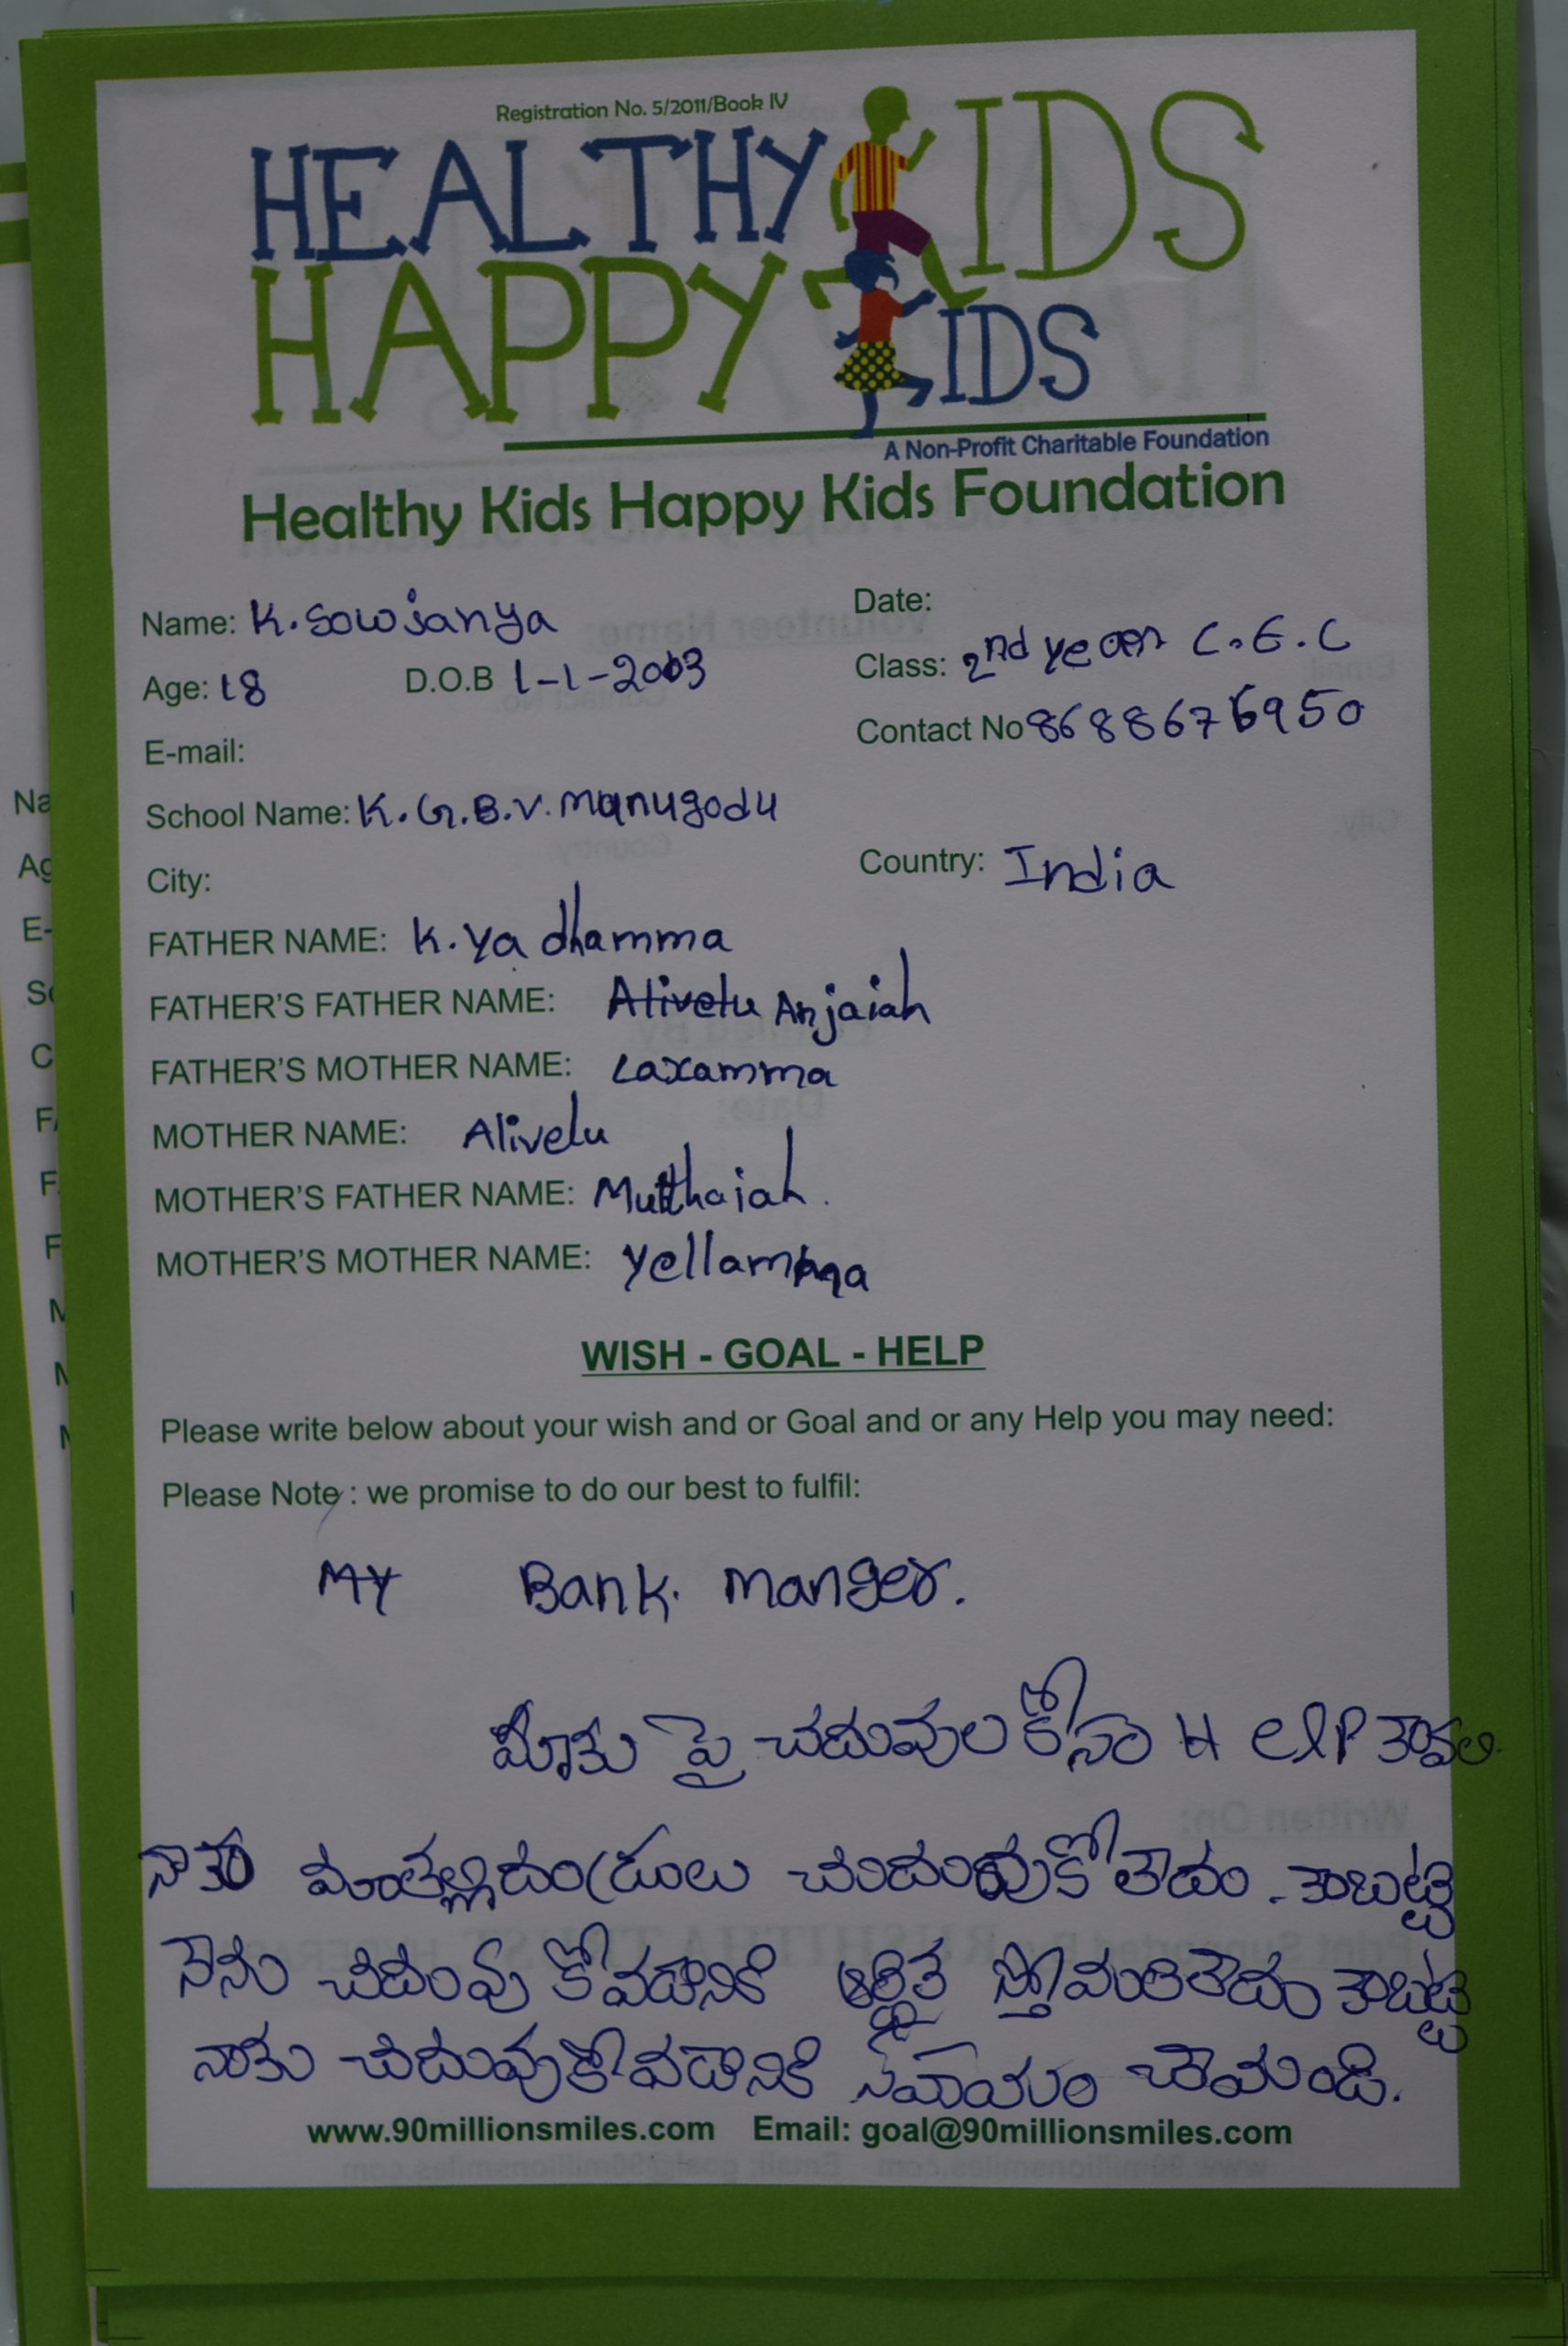 Registration No. 5/2011/Book IV
HEALTHY KIDS
HAPPY KIDS
A Non-Profit Charitable Foundation
Healthy Kids Happy Kids Foundation
Name: K. Sowjanya Date:
Age: 18 D.O.B 1-1-2003 Class: 2nd year C.E.C
E-mail: Contact No 8688676950
School Name: K.G.B.V. Manugodu
City: Country: India
FATHER NAME: K. Yadhamma
FATHER'S FATHER NAME: Alivelu Anjaiah
FATHER'S MOTHER NAME: Laxamma
MOTHER NAME: Alivelu
MOTHER'S FATHER NAME: Mutthaiah.
MOTHER'S MOTHER NAME: Yellamma
WISH - GOAL - HELP
Please write below about your wish and or Goal and or any Help you may need:
Please Note : we promise to do our best to fulfil:
MY Bank. manger.
మాకు పై చదువుల కోసం Help కావల
నాకు మాతల్లిదండ్రులు కాబట్టి
నేను చదువు కోవడానికి లేదు కాబట్టి
నాకు చదువుకోవడానికి సహాయం చేయండి.
www.90millionsmiles.com Email: goal@90millionsmiles.com